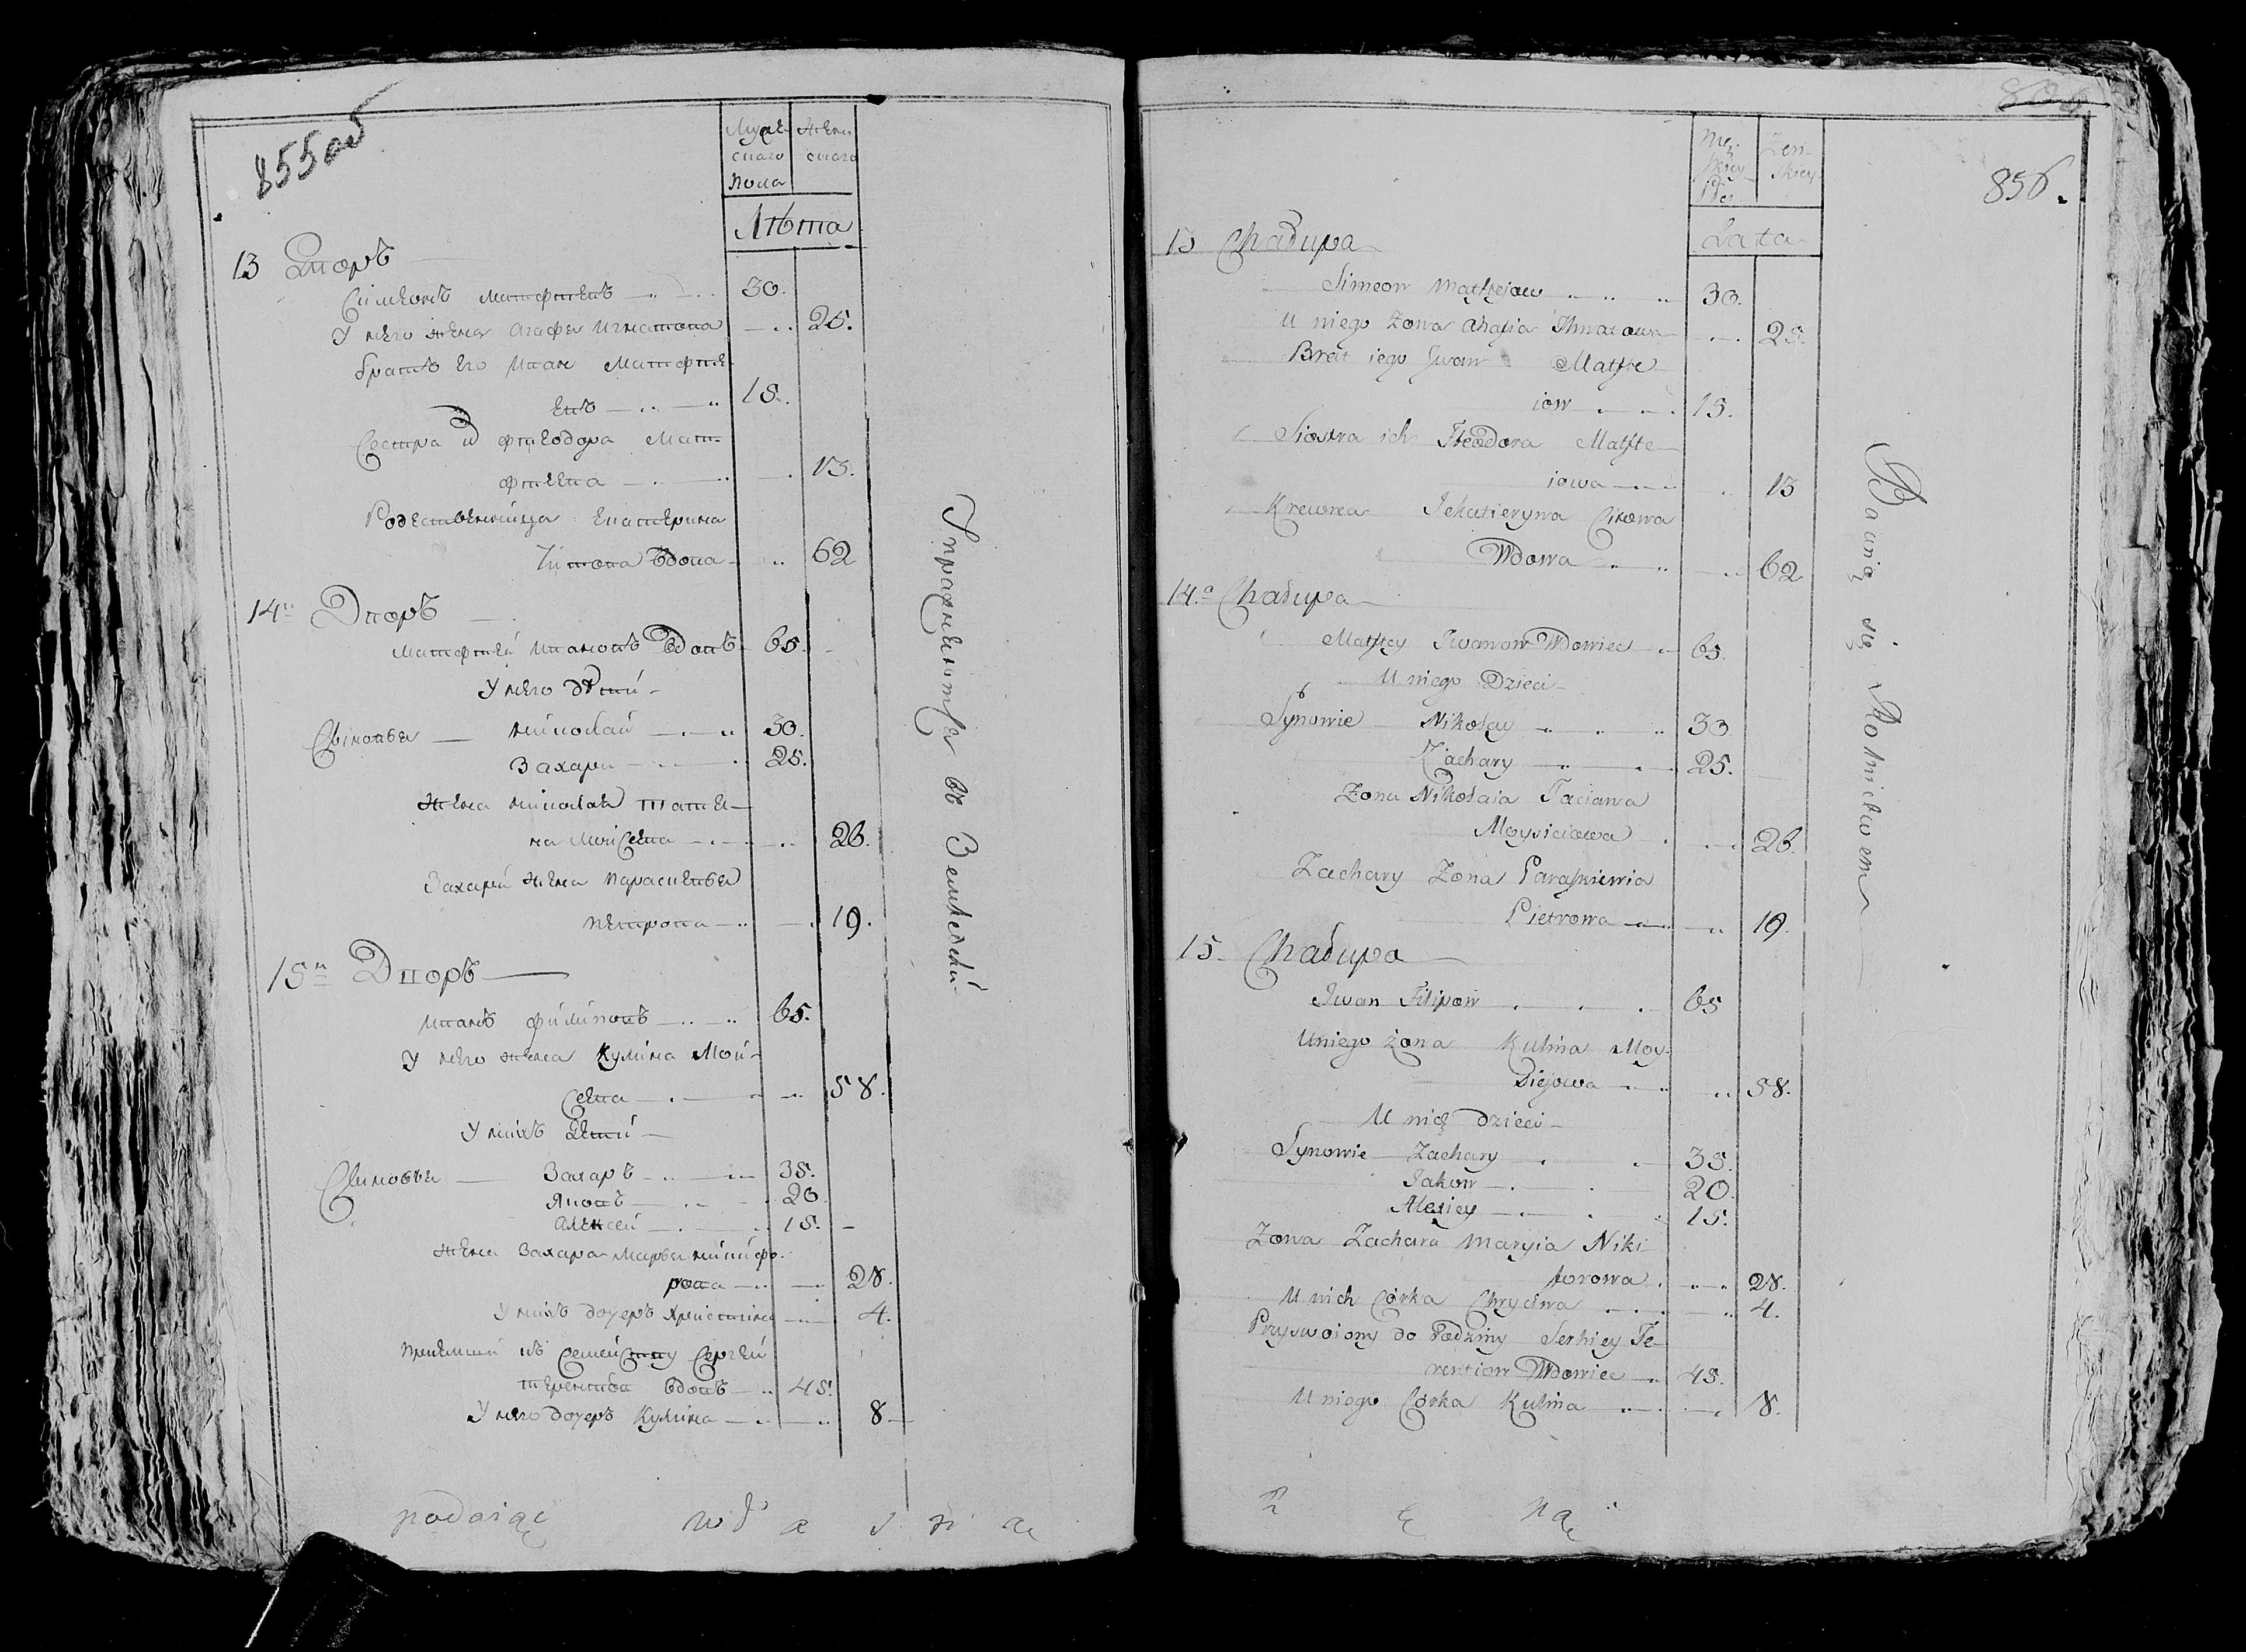 855 об
Мужеского пола
Женского
Лѣта
13 Дворъ
Симеонъ Матфѣевъ 30.
У него жена Агафья Игнатова 25.
братъ его Иван Матфѣ-
евъ 15.
Сестра и Фтеодора Мат-
фѣева 13.
Родественница Екатерина
Титова вдова 62
14й Дворъ
Матфѣй Ивановъ вдовъ 65.
У него дѣти
Сыновья Николай 30.
Захари 25.
Жена Николая Татья-
на Моисеева 26.
Захарія жена Парасковья
Петрова 19.
15й Дворъ
Иванъ Филиповъ 65.
У него жена Кулина Мои-
сеева 58.
У нихъ дѣти
Сыновья Захаръ 35.
Яковъ 20
Алексей 15.
Жена Захара Марья Никифо-
рова 28.
У нихъ дочеръ Христина 4.
Принятый въ семейству Сергей
Терентьев вдовъ 45.
У него дочеръ Кулина 8
Упражняются въ Земледелии
podaiąc własną
856.
Męskiey płci
Żeńskiey
Lata
13 Chałupa
Simeon Matfiejow 30.
U niego Żona Ahafia Ihnatowa 25.
Brat iego Iwan Matfie
iow 15.
Siostra ich Fteodora Matfie
iowa 13
Krewna Jekatieryna Citowa
Wdowa 62
14.a Chałupa
Matfiey Iwanow Wdowiec 65.
U niego Dzieci
Synowie Nikołay 30
Zachary 25.
Żona Nikołaia Taciana
Moysieiowa 26.
Zachary Żona Paraskiewia
Pietrowa 19.
15. Chałupa
Iwan Filipow 65
U niego żona Kulina Moy-
siejowa 58.
U nich dzieci
Synowie Zachary 35.
Jakow 20.
Alexiey 15.
Żona Zachara Maryia Niki
forowa 28.
U nich Córka Chryctina 4.
Przyswoiony do Fadziny Serhiey Te-
rentiow Wdowiec 45.
U niego Córka Kulina 8.
Bawią się Rolnictwem
ręką